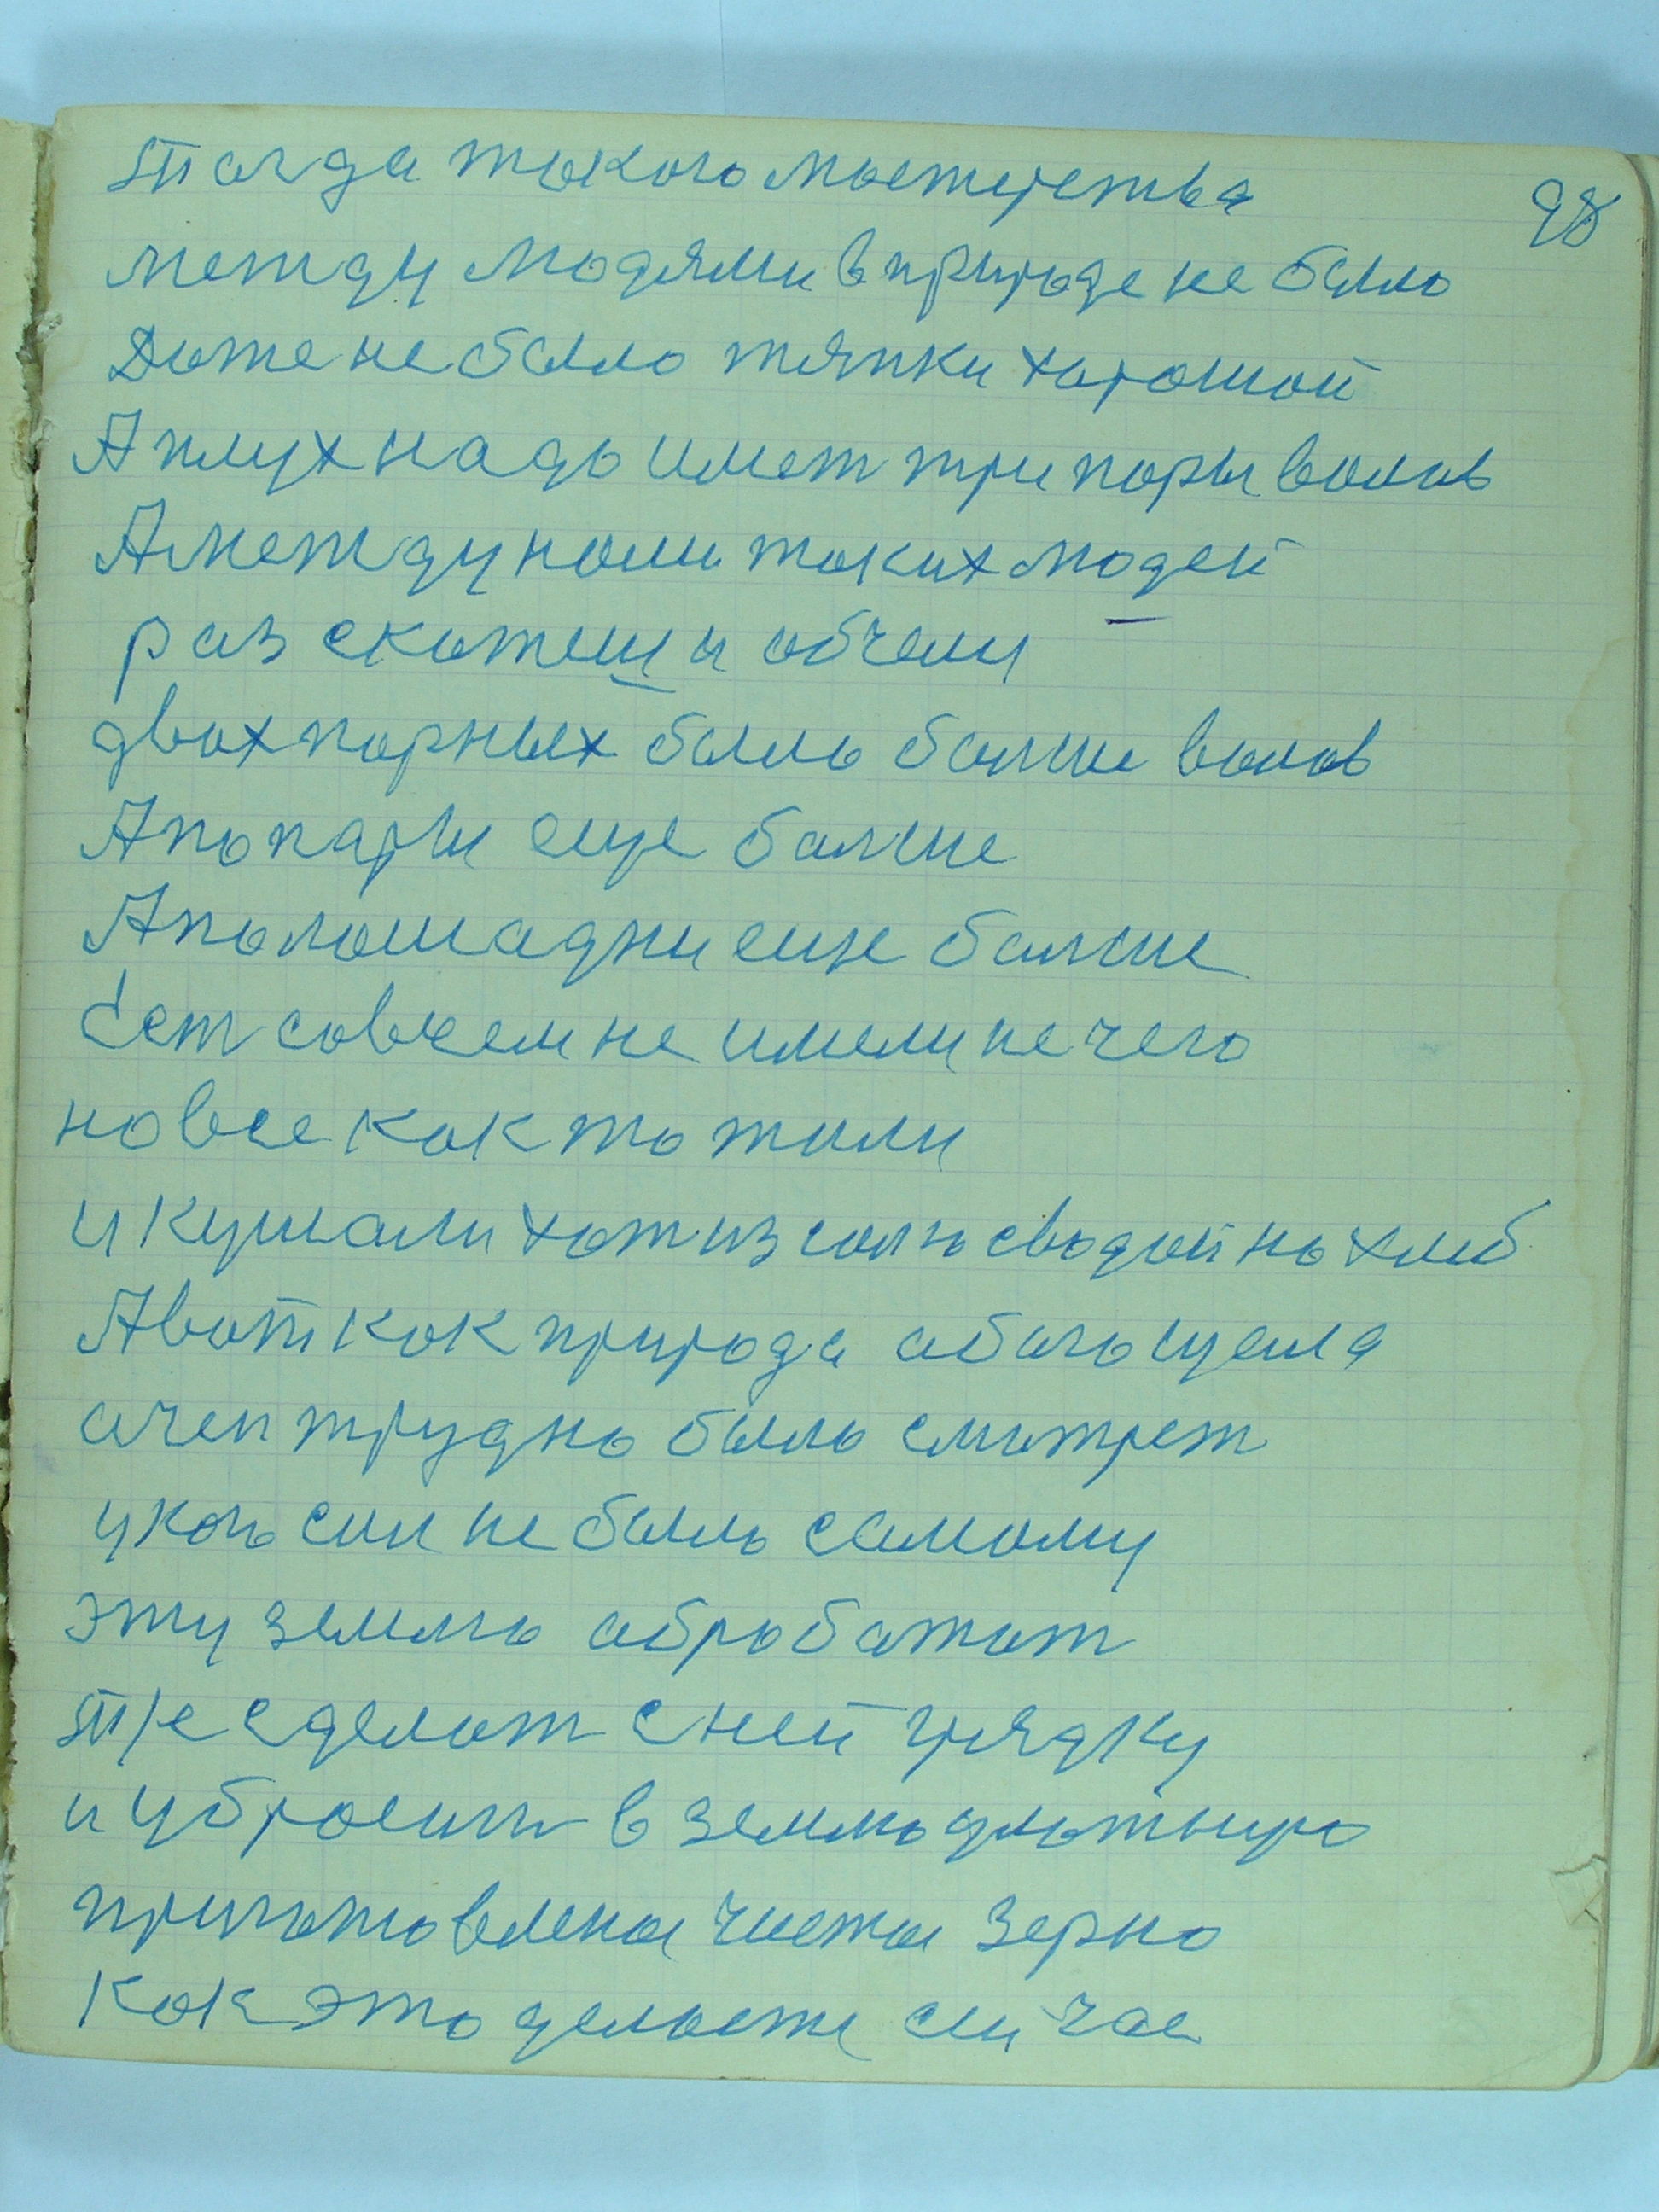 Тагда такого мастерства
98
между людями в природе не было
Даже не было тяпки харошой
А плух надо имет три пары волов
А между нами таких людей
раз скажещ и обчелц
двох парных было болше волов
А по пары еще болше
А полошадни еще болше
Ест совсем не имели не чего
но все как то жили
и кушали хот из солю с водой но хлиб
А вот как природа обагощела
очен трудно было смотрет
у кого сил не было самому
эту землю обработат
Тре сделат с ней грядку
и убросит в землю для жыре
приготовлена чиста зерно
как это делаете сийчас